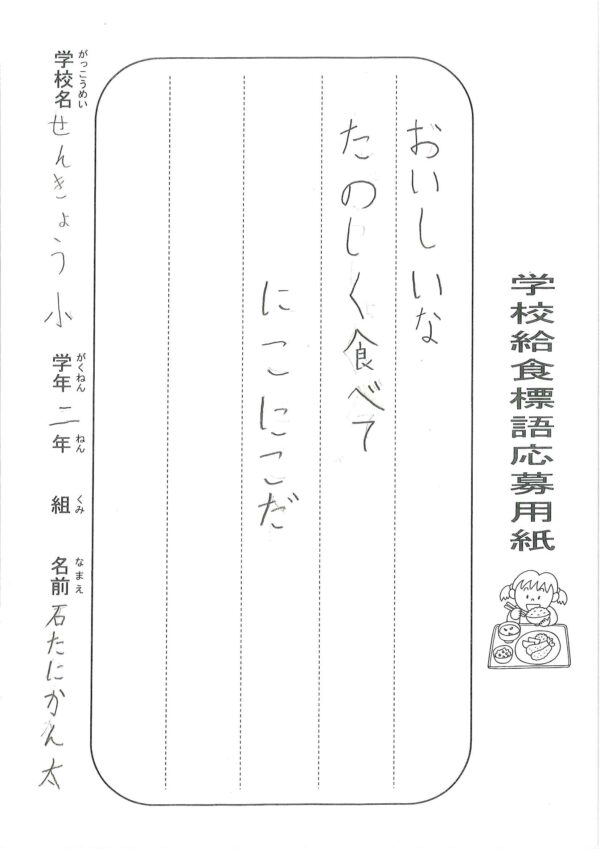 学校給食標語応募用紙
おいしいな
たのしく食べて
にこにこだ
学校名 がっこうめい せんきょう小 学年 がくねん 二年 ねん 組 くみ 名前 なまえ 石たにかん太